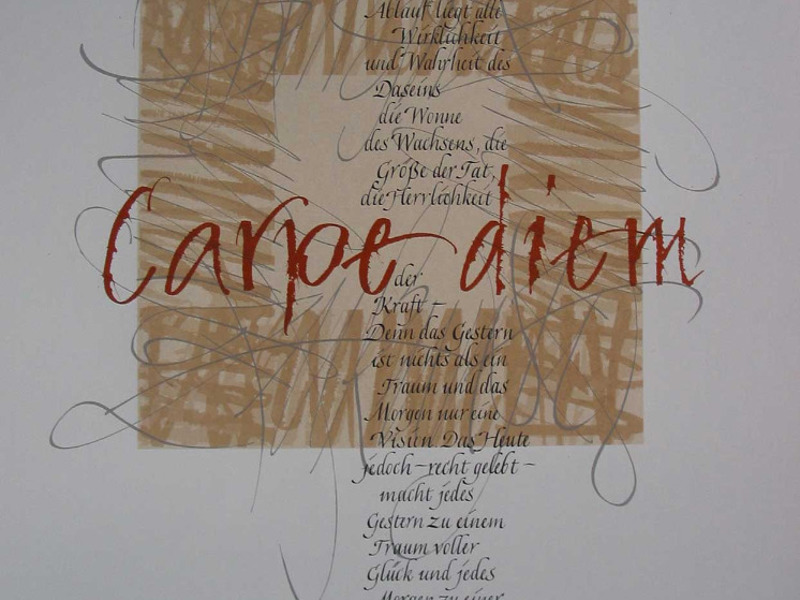 Ablauf liegt alle
Wirklichkeit
und Wahrheit des
Daseins
die Wonne
des Wachsens, die
Größe der Tat,
die Herrlichkeit
Carpe diem
der
Kraft –
Denn das Gestern
ist nichts als ein
Traum und das
Morgen nur eine
Vision. Das Heute
jedoch – recht gelebt –
macht jedes
Gestern zu einem
Traum voller
Glück und jedes
Morgen zu einer